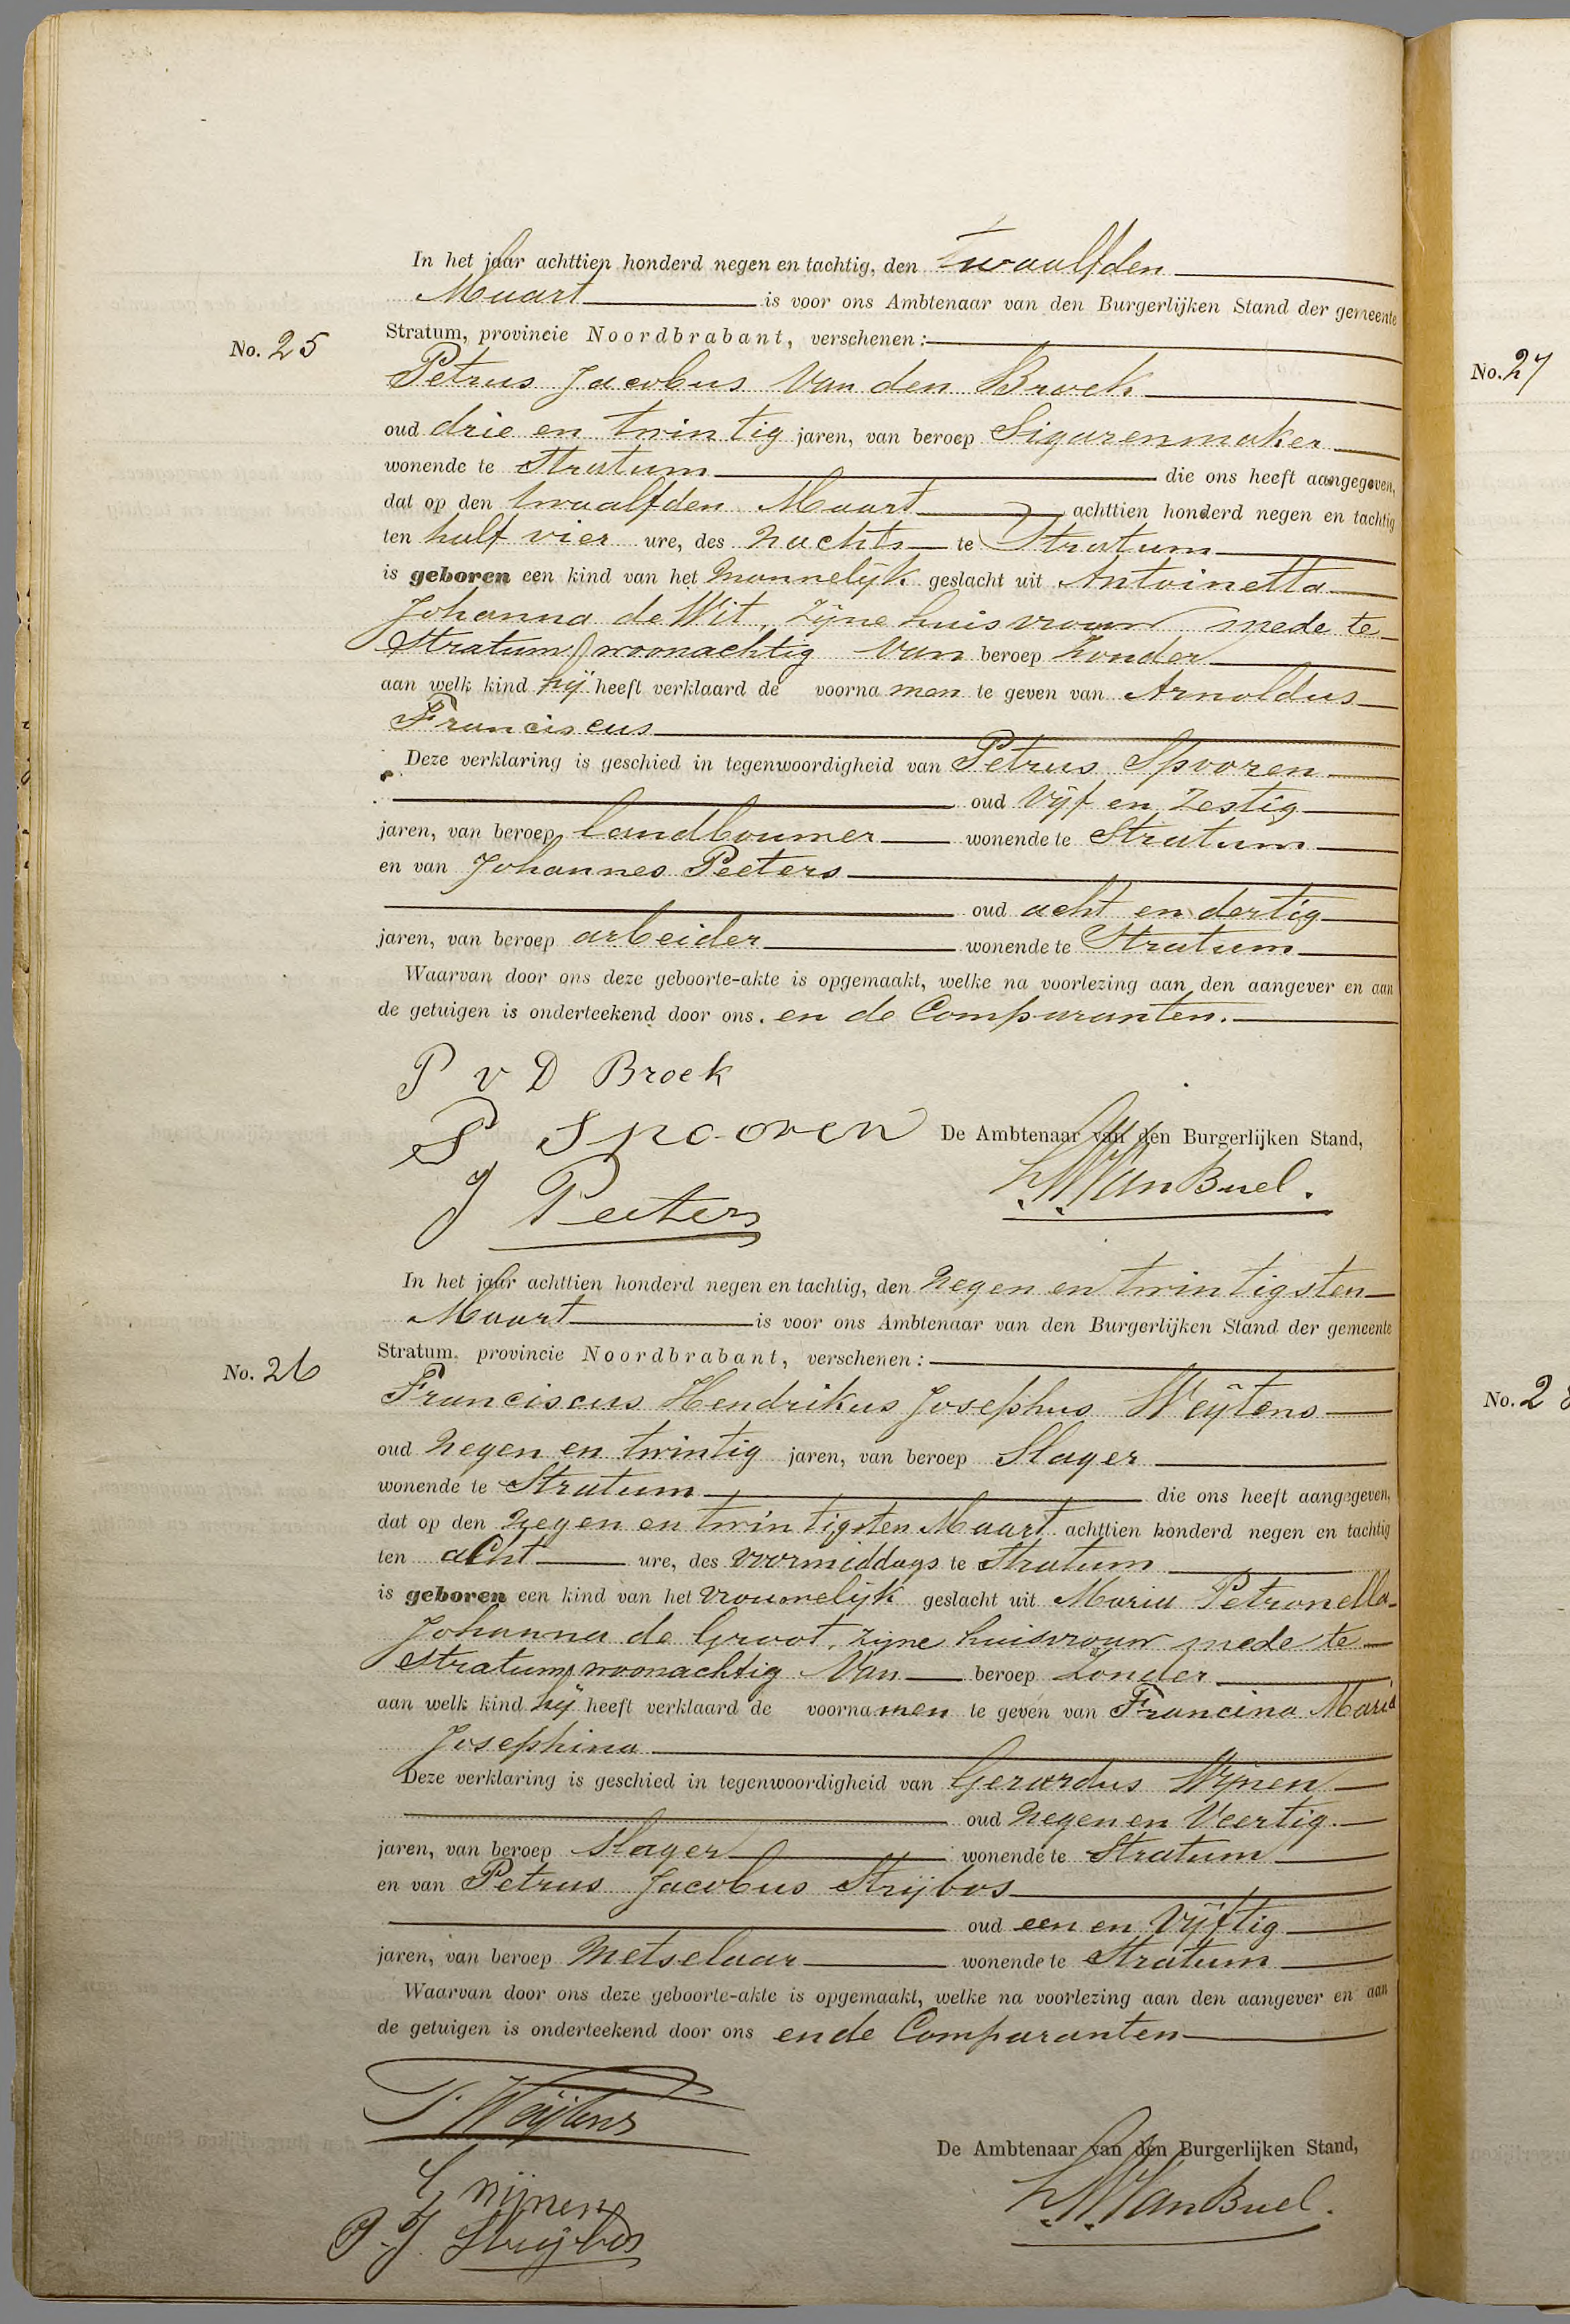 In het jaar achttien honderd negen en tachtig, den Twaalfden
Maart is voor ons Ambtenaar van den Burgerlijken Stand der gemeente
No. 25
Stratum, provincie Noordbrabant, verschenen:
Petrus Jacobus Van den Broek
oud drie en twintig jaren, van beroep Sigarenmaker
wonende te Stratum die ons heeft aangegeven,
dat op den twaalfden Maart achttien honderd negen en tachtig
ten half vier ure, des nachts te Stratum
is geboren een kind van het mannelijk geslacht uit Antoinetta
Johanna de Wit, zijne huisvrouw mede te
Stratum woonachtig van beroep zonder
aan welk kind hij heeft verklaard de voornamen te geven van Arnoldus
Franciscus
Deze verklaring is geschied in tegenwoordigheid van Petrus Spooren
oud vijf en zestig
jaren, van beroep landbouwer wonende te Stratum
en van Johannes Peeters
oud acht en dertig
jaren, van beroep arbeider wonende te Stratum
Waarvan door ons deze geboorte-akte is opgemaakt, welke na voorlezing aan den aangever en aan
de getuigen is onderteekend door ons. en de Comparanten.
P v D Broek
P Spooren De Ambtenaar van den Burgerlijken Stand,
J Peeters
Van Buel.
In het jaar achttien honderd negen en tachtig, den negen en twintigsten
Maart is voor ons Ambtenaar van den Burgerlijken Stand der gemeente
No. 26
Stratum, provincie Noordbrabant, verschenen:
Franciscus Hendrikus Josephus Weijtens
oud negen en twintig jaren, van beroep Slager
wonende te Stratum die ons heeft aangegeven,
dat op den negen en twintigsten Maart achttien honderd negen en tachtig
ten acht ure, des voormiddags te Stratum
is geboren een kind van het vrouwelijk geslacht uit Maria Petronella
Johanna de Groot, zijne huisvrouw mede te
Stratum woonachtig van beroep zonder
aan welk kind hij heeft verklaard de voornamen te geven van Francina Maria
Josephina
Deze verklaring is geschied in tegenwoordigheid van Gerardus Wijnen
oud negen en Veertig
jaren, van beroep slager wonende te Stratum
en van Petrus Jacobus Strijbos
oud een en Vijftig
jaren, van beroep Metselaar wonende te Stratum
Waarvan door ons deze geboorte-akte is opgemaakt, welke na voorlezing aan den aangever en aan
de getuigen is onderteekend door ons en de Comparanten
Weijtens
De Ambtenaar van den Burgerlijken Stand,
G Wijnen
Van Buel.
P. J. Strijbos
No. 27
No. 2